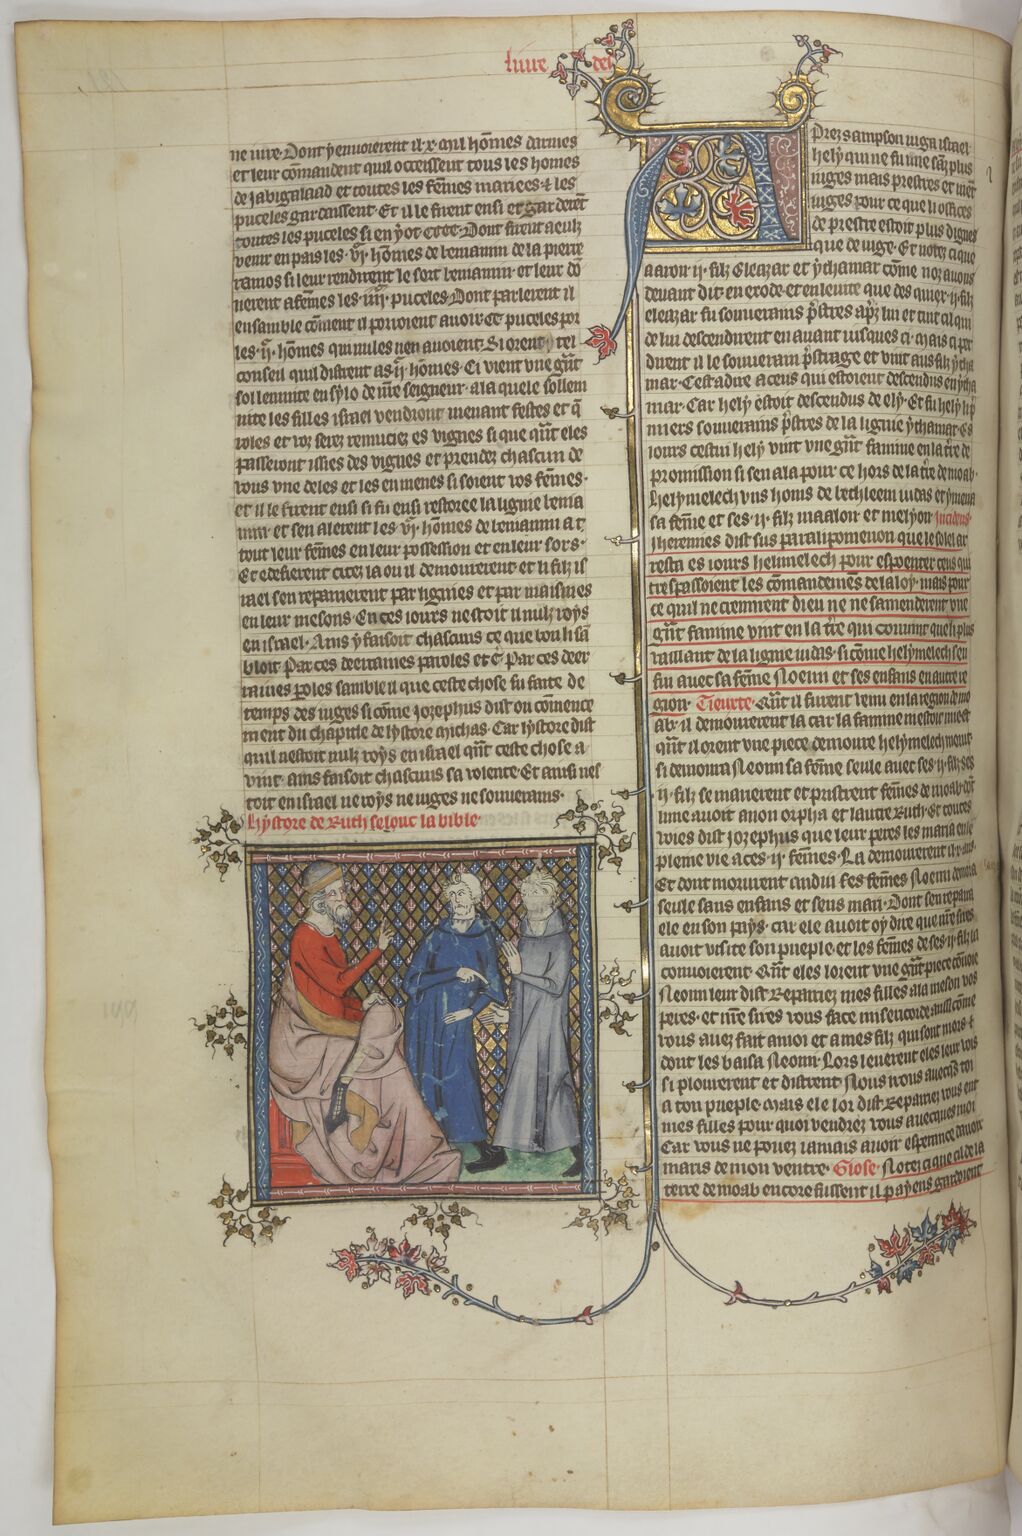 liure del
ne uire. Dont y enuoierent il .x. mil hōmes darmes
et leur cōmandent quil occeissent tous les homes
de iabigalaad et toutes les fēmes mariees & les
puceles gardaissent. Et il le firent ensi et garderēt
toutes les puceles si en y ot .cccc. Dont furent aculz
venir en pais les .vjc. hōmes de beniamin de la pierre
ramos si leur rendirent le sort beniamin. et leur dō
nerent a fēmes les .iiijc. puceles. Dont parlerent il
ensamble cōment il porroient auoir .CC. puceles por
les .ijc. hōmes qui nules nen auoient. Si orent tel
conseil quil distrent as .ijc. hōmes. Ci vient vne grāt
sollennite en sylo de nr̄e seigneur. a la quele sollem
nite les filles israel vendront menant festes et q̄
roles et voz serez remuciez es vignes si que qūt eles
passeront issies des vignes et prendez chascun de
vous vne deles et les en menes si soient vos fēmes.
et il le firent ensi si fu ensi restoree la lignie benia
min. et sen alerent les .vjc. hōmes de beniamin a t
tout leur fēmes en leur possession et en leur sors.
Et edefierent citez la ou il demourerent. et li filz is
rael sen repairerent par lignies et par maisnies
en leur mesons. En ces iours nestoit il nulz roys
en israel. Ains y faisoit chascuns ce que bon li sā
bloit. Par ces deerraines paroles et c̄. Par ces deer
raines p̄oles samble il que ceste chose fu faite de
temps des iuges si cōme iozephus dist ou cōmence
ment du chapitle de lystore michas. Car lystore dist
quil nestoit nulz roys en israel qūt ceste chose a
vint. ains faisoit chascuns sa volente. Et ausi nes
toit en israel ne roys ne iuges ne souuerains.
Lystore de Ruth selonc la bible.
Prez sampson iuga israel
hely qui ne fu mie sās plus
iuges mais prestres et nient
iuges pour ce que li offices
de prestre estoit plus dignes
que de iuge. Et notez ci que
aaron .ij. filz Eleazar et ythamar cōme noz auons
deuant dit. en exode. et en leuite que des quier .ij. filz
eleazar fu souuerains p̄stres ap̄z lui et tint cil qui
de lui descendirent en auant iusques ci. Mais ci per
dirent il le souuerain p̄strage et vint aus filz ytha
mar. Cest a dire a ceus qui estoient descendus en ytha
mar. Car hely estoit descendus de ely. Et fu hely li p̄
miers souuerains p̄stres de la lignie ythamar. Es
iours cestui hely vint vne grāt famine en la tr̄e de
promission si sen ala pour ce hors de la tr̄e de moab
helymelech vns homs de bethleem iudas et y mena
sa fēme et ses .ij. filz maalon et melyon. Incidens.
Iherenmes dist sus paralipomenon que le solel ar
resta es iours helimelech pour espoenter ceus qui
trespassoient les cōmandemēs de la loy. mais pour
ce quil ne cremirent dieu ne ne samenderent vne
grāt famine vint en la tr̄e qui conuint que li plus
vaillant de la lignie iudas. si cōme helymelech sen
fui auec sa fēme Noemi et ses enfans en autre re
gion. Tieuxte. Qūt il furent venu en la region de mo
ab. il demourerent la car la famine nestoit mie et
qūt il orent vne piece demoure helymelech morut.
si demoura Neomi sa fēme seule auec ses .ij. filz. ses
.ij. filz se marierent et pristrent fēmes de moab. dōt
lune auoit anon orpha et lautre Ruth. Et toutes
voies dist iozephus que leur peres les maria en le
pleine vie a ces .ij. fēmes. La demourerent il .x. ans
Et dont morurent andui. Ses fēmes Noemi demora
seule sans enfans et sens mari. Dont sen repaira
ele en son pays. car ele auoit oy dire que nr̄e sires
auoit visite son pueple. et les fēmes de ses .ij. filz la
conuoierent. Qūt eles lorent vne grāt piece cōuoie
Neomi leur dist. Repairiez mes filles a la meson vos
peres. et nr̄e sires vous face misericorde ausi cōme
vous auez fait a moi et a mes filz qui sont mors. &
dont les baisa Neomi. Lors leuerent eles leur vois
si plourerent et distrent. Nous irons auecqs toi
a ton pueple. Mais ele lor dist. Repairiez vous ent
mes filles pour quoi vendrez vous auecques moi
Car vous ne pouez iamais auoir esperance dauoir
maris de mon ventre. Glose. Notez ci que cil de la
terre de moab encore fussent il payens gardoient